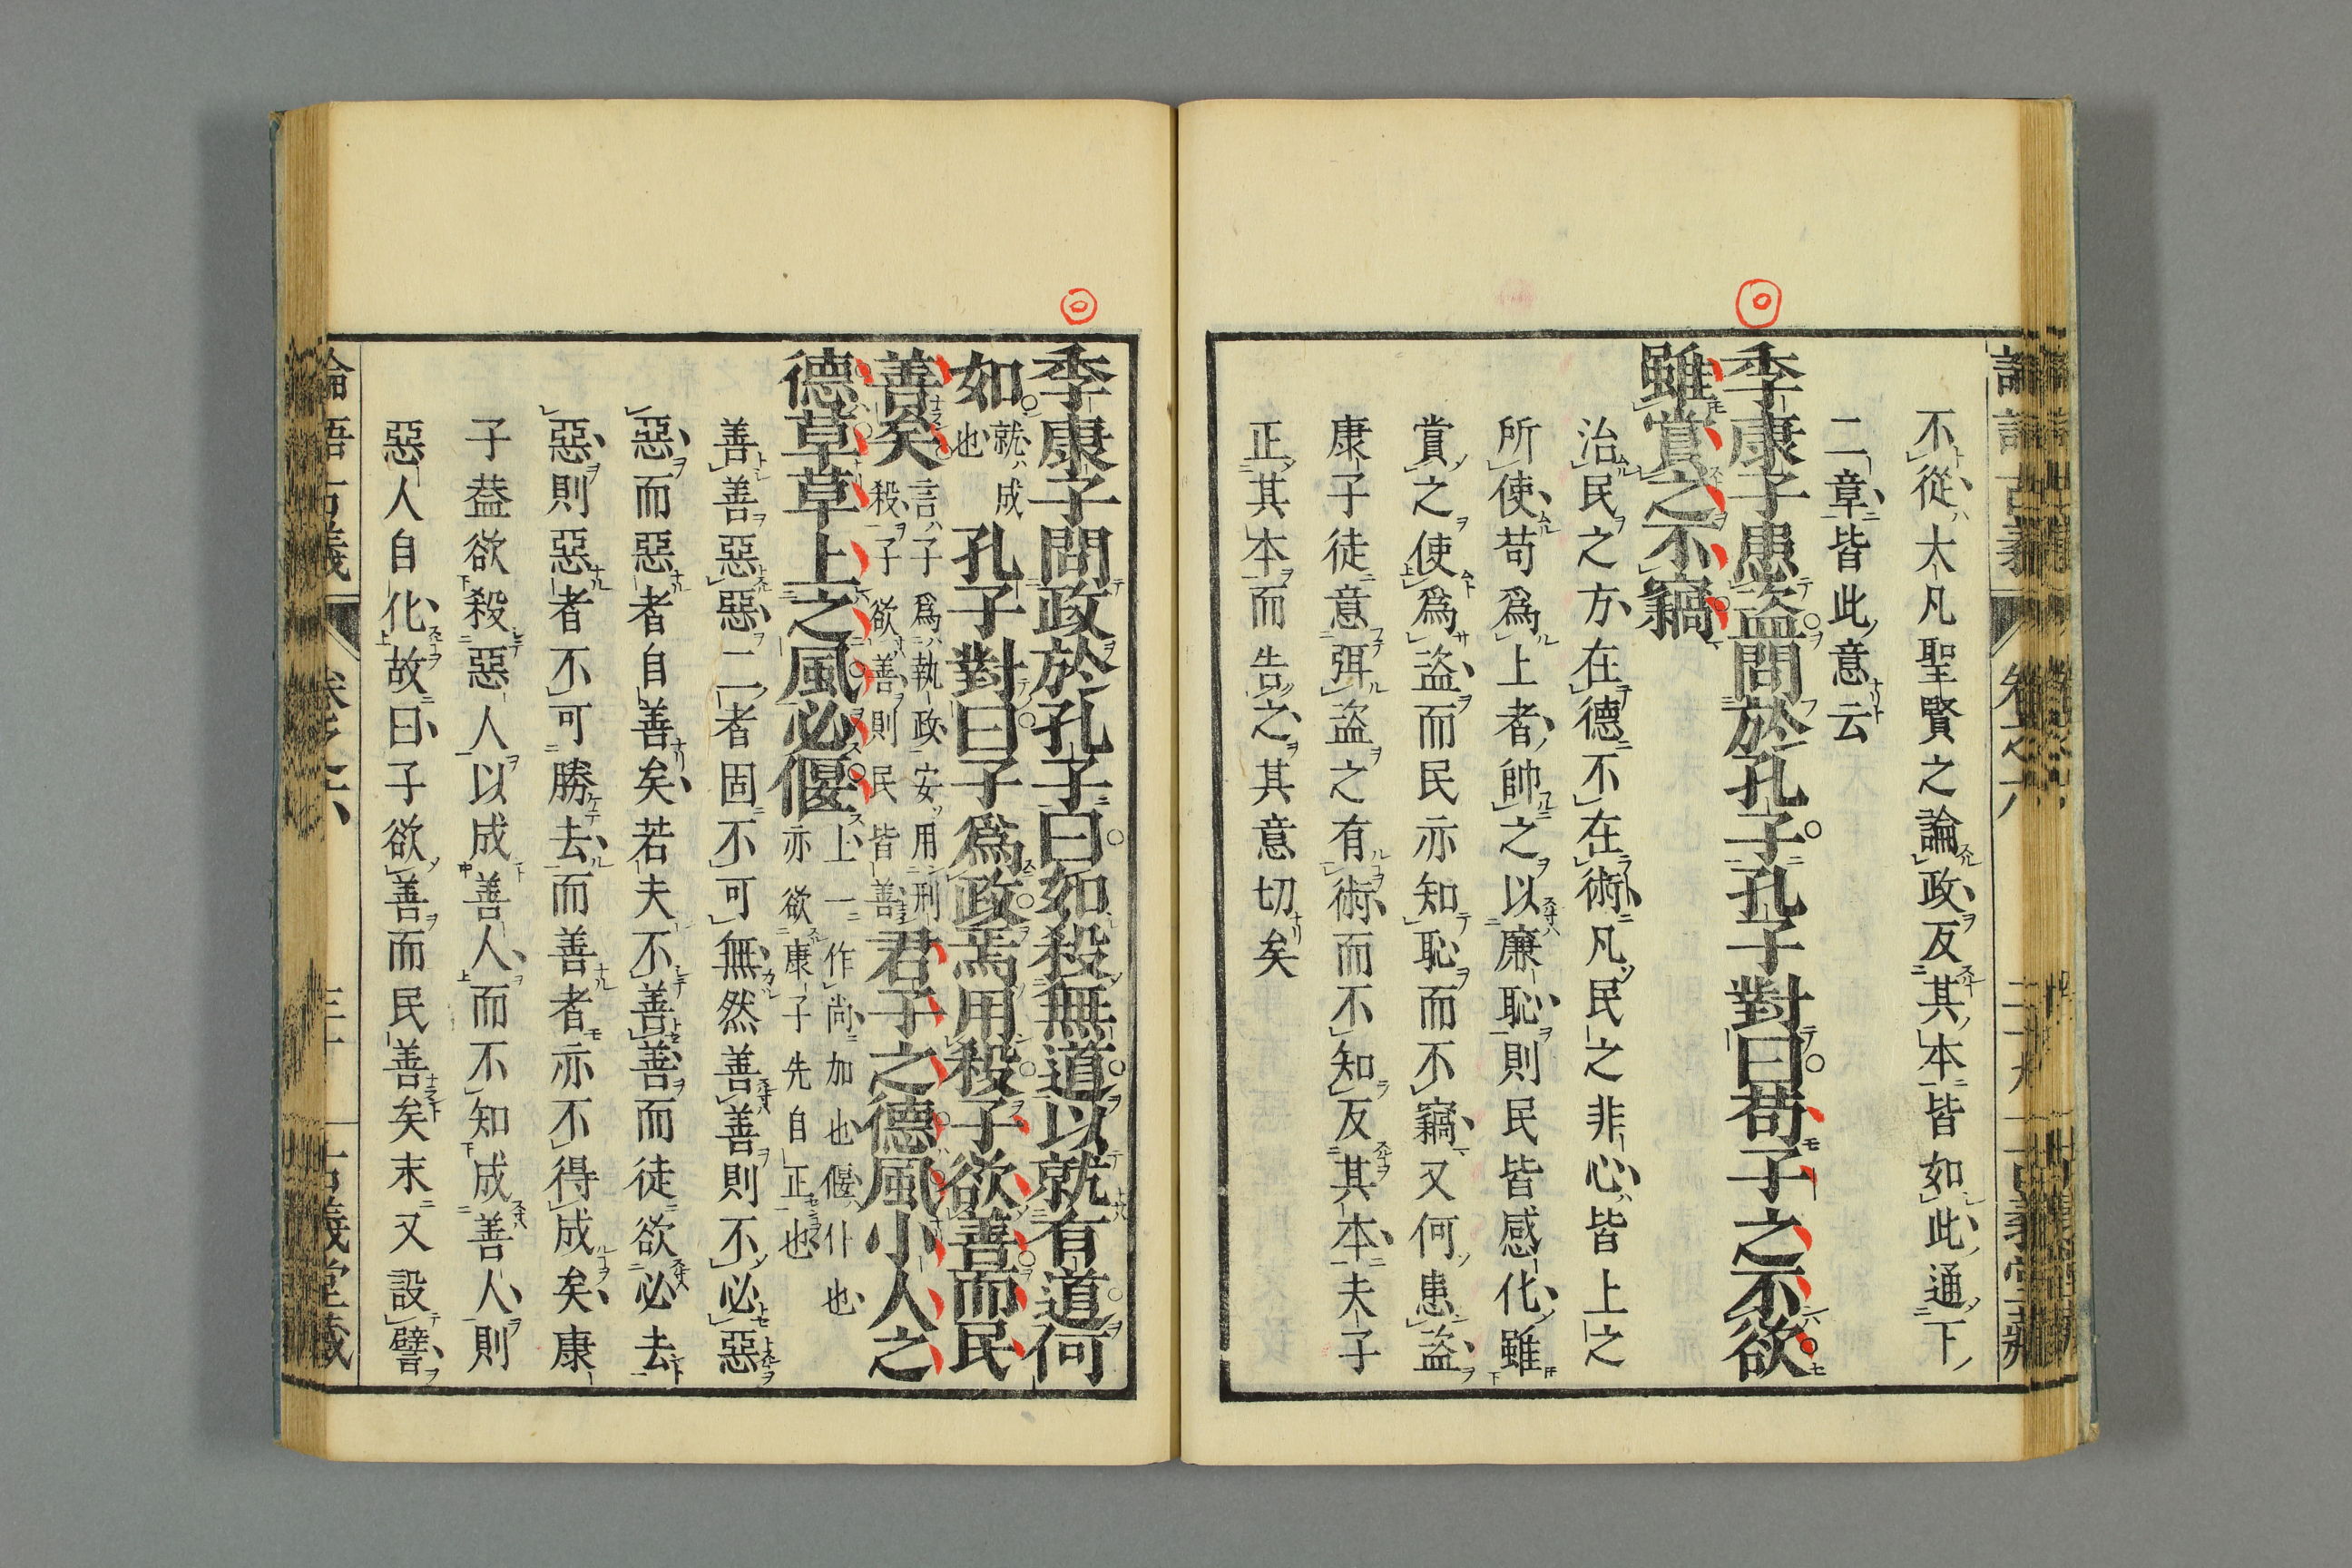 不從大凡聖賢之論政反其本皆如此通下
二章皆此意云
季康子患盜問於孔子孔子對曰苟子之不欲
雖賞之不竊
治民之方在德不在術凡民之非心皆上之
所使苟爲上者帥之以廉恥則民皆感化雖
賞之使爲盜而民亦知恥而不竊又何患盜
康子徒意弭盜之有術而不知反其本夫子
正其本而告之其意切矣
季康子問政於孔子曰如殺無道以就有道何
如
就成
也
孔子對曰子爲政焉用殺子欲善而民
善矣
言子爲執政安用刑
殺子欲善則民皆善
君子之德風小人之
德草草上之風必偃
上一作尚加也偃仆也
亦欲康子先自正也
善善惡惡二者固不可無然善善則不必惡
惡而惡者自善矣若夫不善善而徒欲必去
惡則惡者不可勝去而善者亦不得成矣康
子葢欲殺惡人以成善人而不知成善人則
惡人自化故曰子欲善而民善矣末又設譬
論語古義
卷之六
三十
古義堂藏